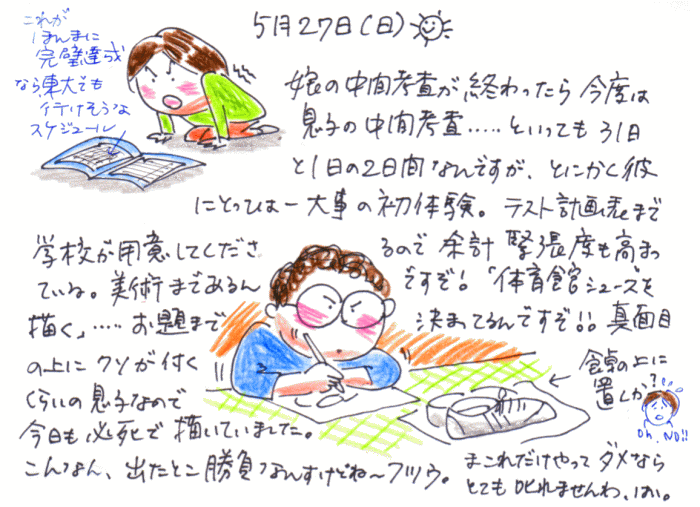 5月27日(日)
これが
ほんまに
完璧達成
なら東大でも
行けそうな
スケジュール
娘の中間考査が終わったら今度は
息子の中間考査……といっても31日
と1日の2日間なんですが、とにかく彼
にとっては一大事の初体験。テスト計画表まで
学校が用意してくださ るので余計緊張度も高まっ
ていね。美術まであるん ですぞ!「体育館シューズを
描く」……お題まで 決まってるんですぞ!!真面目
の上にクソが付く
くらいの息子なので
今日も必死で描いていました。
こんなん、出たとこ勝負なんすけどね〜フツウ。
食卓の上に
置くか?
Oh, NO!!
まこれだけやってダメなら
とても叱れませんわ、はい。